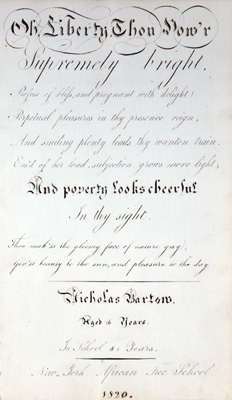 Oh Liberty Thou Pow'r
Supremely bright.
Profuse of bliss, and pregnant with delight;
Perpetual pleasures in thy presence reign,
And smiling plenty leads thy wanton train.
Eas'd of her load, subjection grows more light,
And poverty looks cheerful
In thy sight.
Thou mak'st the gloomy face of nature gay;
Giv'st beauty to the sun, and pleasure to the day
Nicholas Bartow.
Aged Years.
In School Years.
New-York African Free School.
1820.